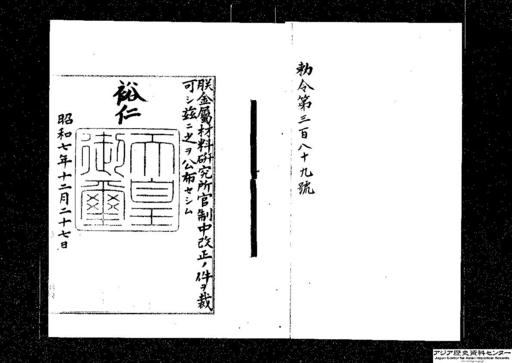 勅令第三百八十九號
朕金屬材料研究所官制中改正ノ件ヲ裁
可シ茲ニ之ヲ公布セシム
裕仁
天皇
御璽
昭和七年十二月二十七日
アジア歴史資料センター
Japan Center for Asian Historical Records